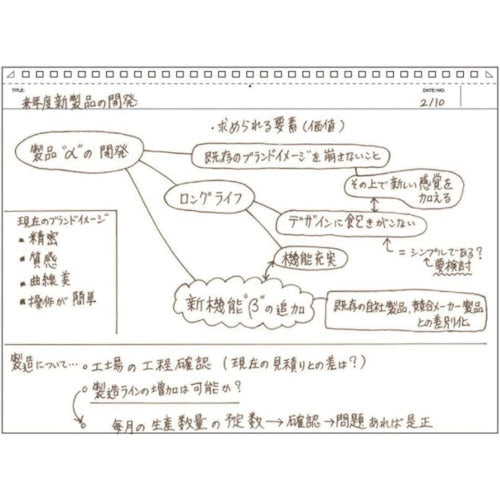 TITLE:
来年度新製品の開発
DATE/NO.
2/10
・求められる要素(価値)
製品"α"の開発
既存のブランドイメージを崩さないこと
その上で新しい感覚を
加える
ロングライフ
デザインに飽きがこない
=シンプルである?
要検討
機能充実
現在のブランドイメージ
■ 精密
■ 質感
■ 曲線美
■ 操作が簡単
新機能"β"の追加
既存の自社製品、競合メーカー製品
との差別化
製造について…○工場の工程確認(現在の見積りとの差は?)
○製造ラインの増加は可能か?
○毎月の生産数量の予定数→確認→問題あれば是正